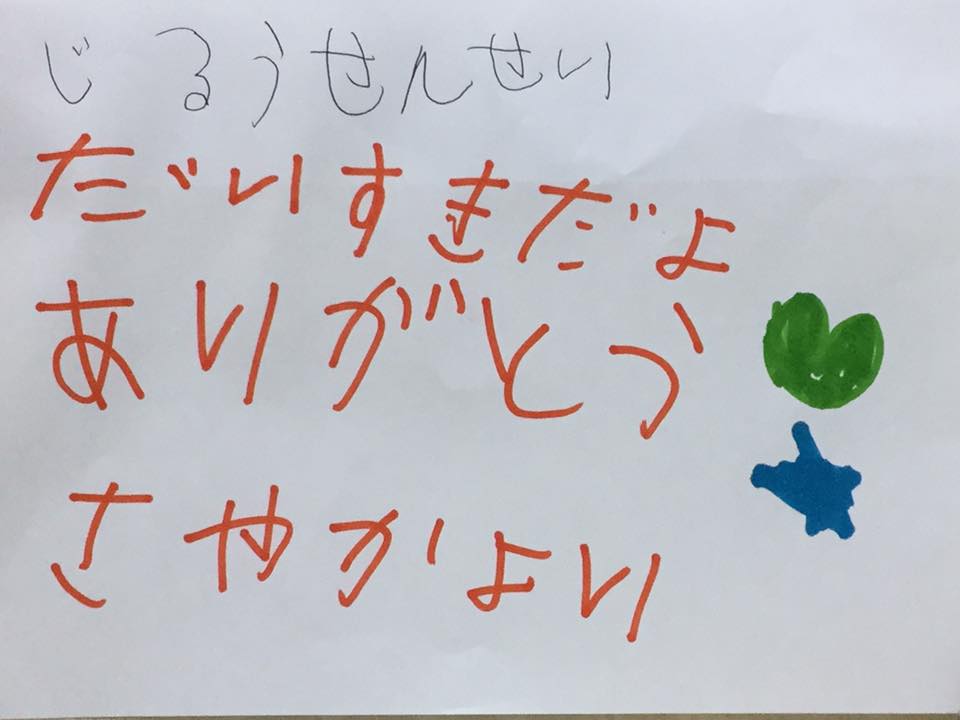 じるうせんせい
だいすきだよ
ありがとう
さやかより